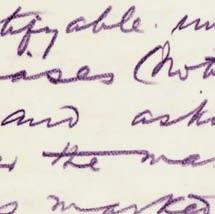 tifyable. in
ases (Not
and ask
the ma
marked